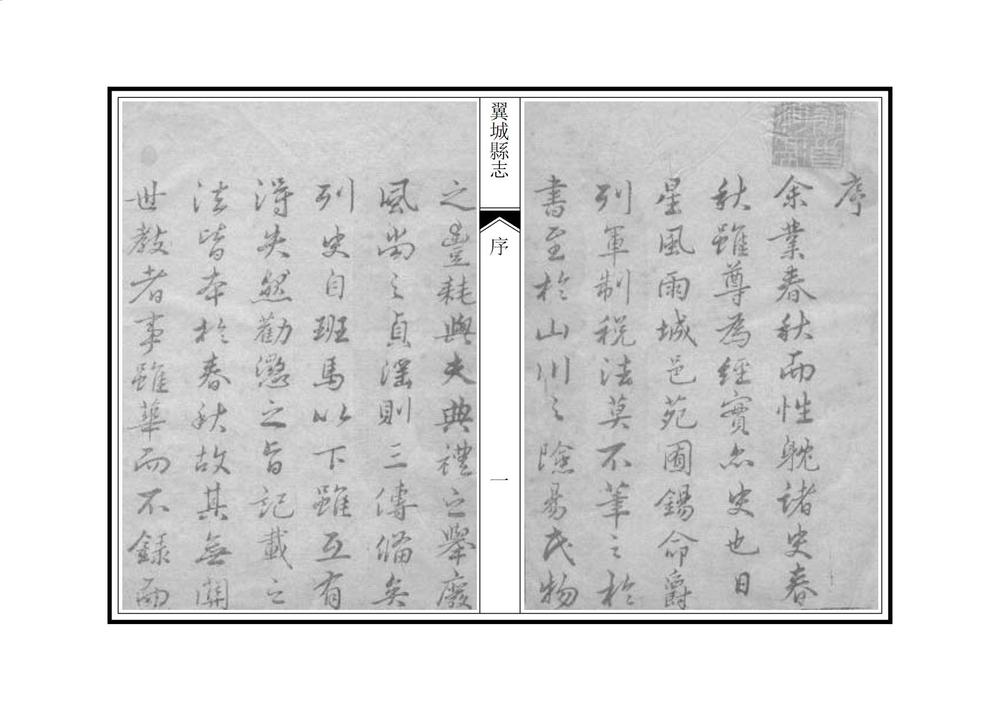 序
余業春秋而性耽諸史春
秋雖尊為經實亦史也日
星風雨城邑苑囿錫命爵
列軍制税法莫不筆之於
書至於山川之險易民物
翼城縣志
序
一
之豐耗與夫典禮之舉廢
風尚之貞滛則三傳俻矣
列史自班馬以下雖互有
得失然勸懲之旨記載之
法皆本於春秋故其無關
世教者事雖華而不録而